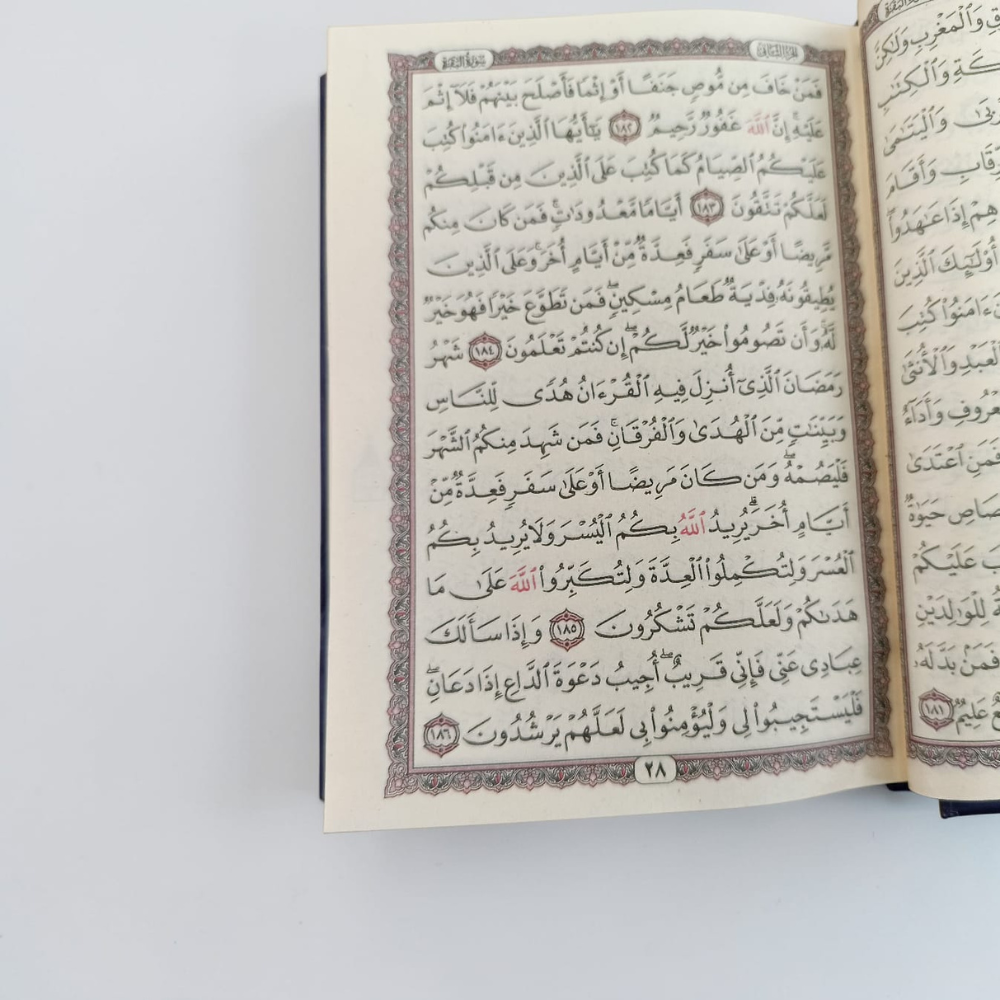 وَٱلْمَغْرِبِ وَلَٰكِنَّ
وَٱلْكِتَٰبِ
وَٱلْيَتَٰمَىٰ
وَأَقَامَ
إِذَا عَٰهَدُوا۟ۖ
أُو۟لَٰٓئِكَ ٱلَّذِينَ
ءَامَنُوا۟ كُتِبَ
وَٱلْأُنثَىٰ
وَأَدَآءٌ
فَمَنِ ٱعْتَدَىٰ
حَيَوٰةٌ
عَلَيْكُمْ
لِلْوَٰلِدَيْنِ
فَمَنۢ بَدَّلَهُۥ
عَلِيمٌ ١٨١
سُورَةُ البَقَرَةِ
الجزء الثاني
فَمَنْ خَافَ مِن مُّوصٍ جَنَفًا أَوْ إِثْمًا فَأَصْلَحَ بَيْنَهُمْ فَلَآ إِثْمَ
عَلَيْهِۚ إِنَّ ٱللَّهَ غَفُورٌ رَّحِيمٌ ١٨٢ يَٰٓأَيُّهَا ٱلَّذِينَ ءَامَنُوا۟ كُتِبَ
عَلَيْكُمُ ٱلصِّيَامُ كَمَا كُتِبَ عَلَى ٱلَّذِينَ مِن قَبْلِكُمْ
لَعَلَّكُمْ تَتَّقُونَ ١٨٣ أَيَّامًا مَّعْدُودَٰتٍۚ فَمَن كَانَ مِنكُم
مَّرِيضًا أَوْ عَلَىٰ سَفَرٍ فَعِدَّةٌ مِّنْ أَيَّامٍ أُخَرَۚ وَعَلَى ٱلَّذِينَ
يُطِيقُونَهُۥ فِدْيَةٌ طَعَامُ مِسْكِينٍۖ فَمَن تَطَوَّعَ خَيْرًا فَهُوَ خَيْرٌ
لَّهُۥۚ وَأَن تَصُومُوا۟ خَيْرٌ لَّكُمْۖ إِن كُنتُمْ تَعْلَمُونَ ١٨٤ شَهْرُ
رَمَضَانَ ٱلَّذِىٓ أُنزِلَ فِيهِ ٱلْقُرْءَانُ هُدًى لِّلنَّاسِ
وَبَيِّنَٰتٍ مِّنَ ٱلْهُدَىٰ وَٱلْفُرْقَانِۚ فَمَن شَهِدَ مِنكُمُ ٱلشَّهْرَ
فَلْيَصُمْهُۖ وَمَن كَانَ مَرِيضًا أَوْ عَلَىٰ سَفَرٍ فَعِدَّةٌ مِّنْ
أَيَّامٍ أُخَرَۗ يُرِيدُ ٱللَّهُ بِكُمُ ٱلْيُسْرَ وَلَا يُرِيدُ بِكُمُ
ٱلْعُسْرَ وَلِتُكْمِلُوا۟ ٱلْعِدَّةَ وَلِتُكَبِّرُوا۟ ٱللَّهَ عَلَىٰ مَا
هَدَىٰكُمْ وَلَعَلَّكُمْ تَشْكُرُونَ ١٨٥ وَإِذَا سَأَلَكَ
عِبَادِى عَنِّى فَإِنِّى قَرِيبٌۖ أُجِيبُ دَعْوَةَ ٱلدَّاعِ إِذَا دَعَانِۖ
فَلْيَسْتَجِيبُوا۟ لِى وَلْيُؤْمِنُوا۟ بِى لَعَلَّهُمْ يَرْشُدُونَ ١٨٦
٢٨